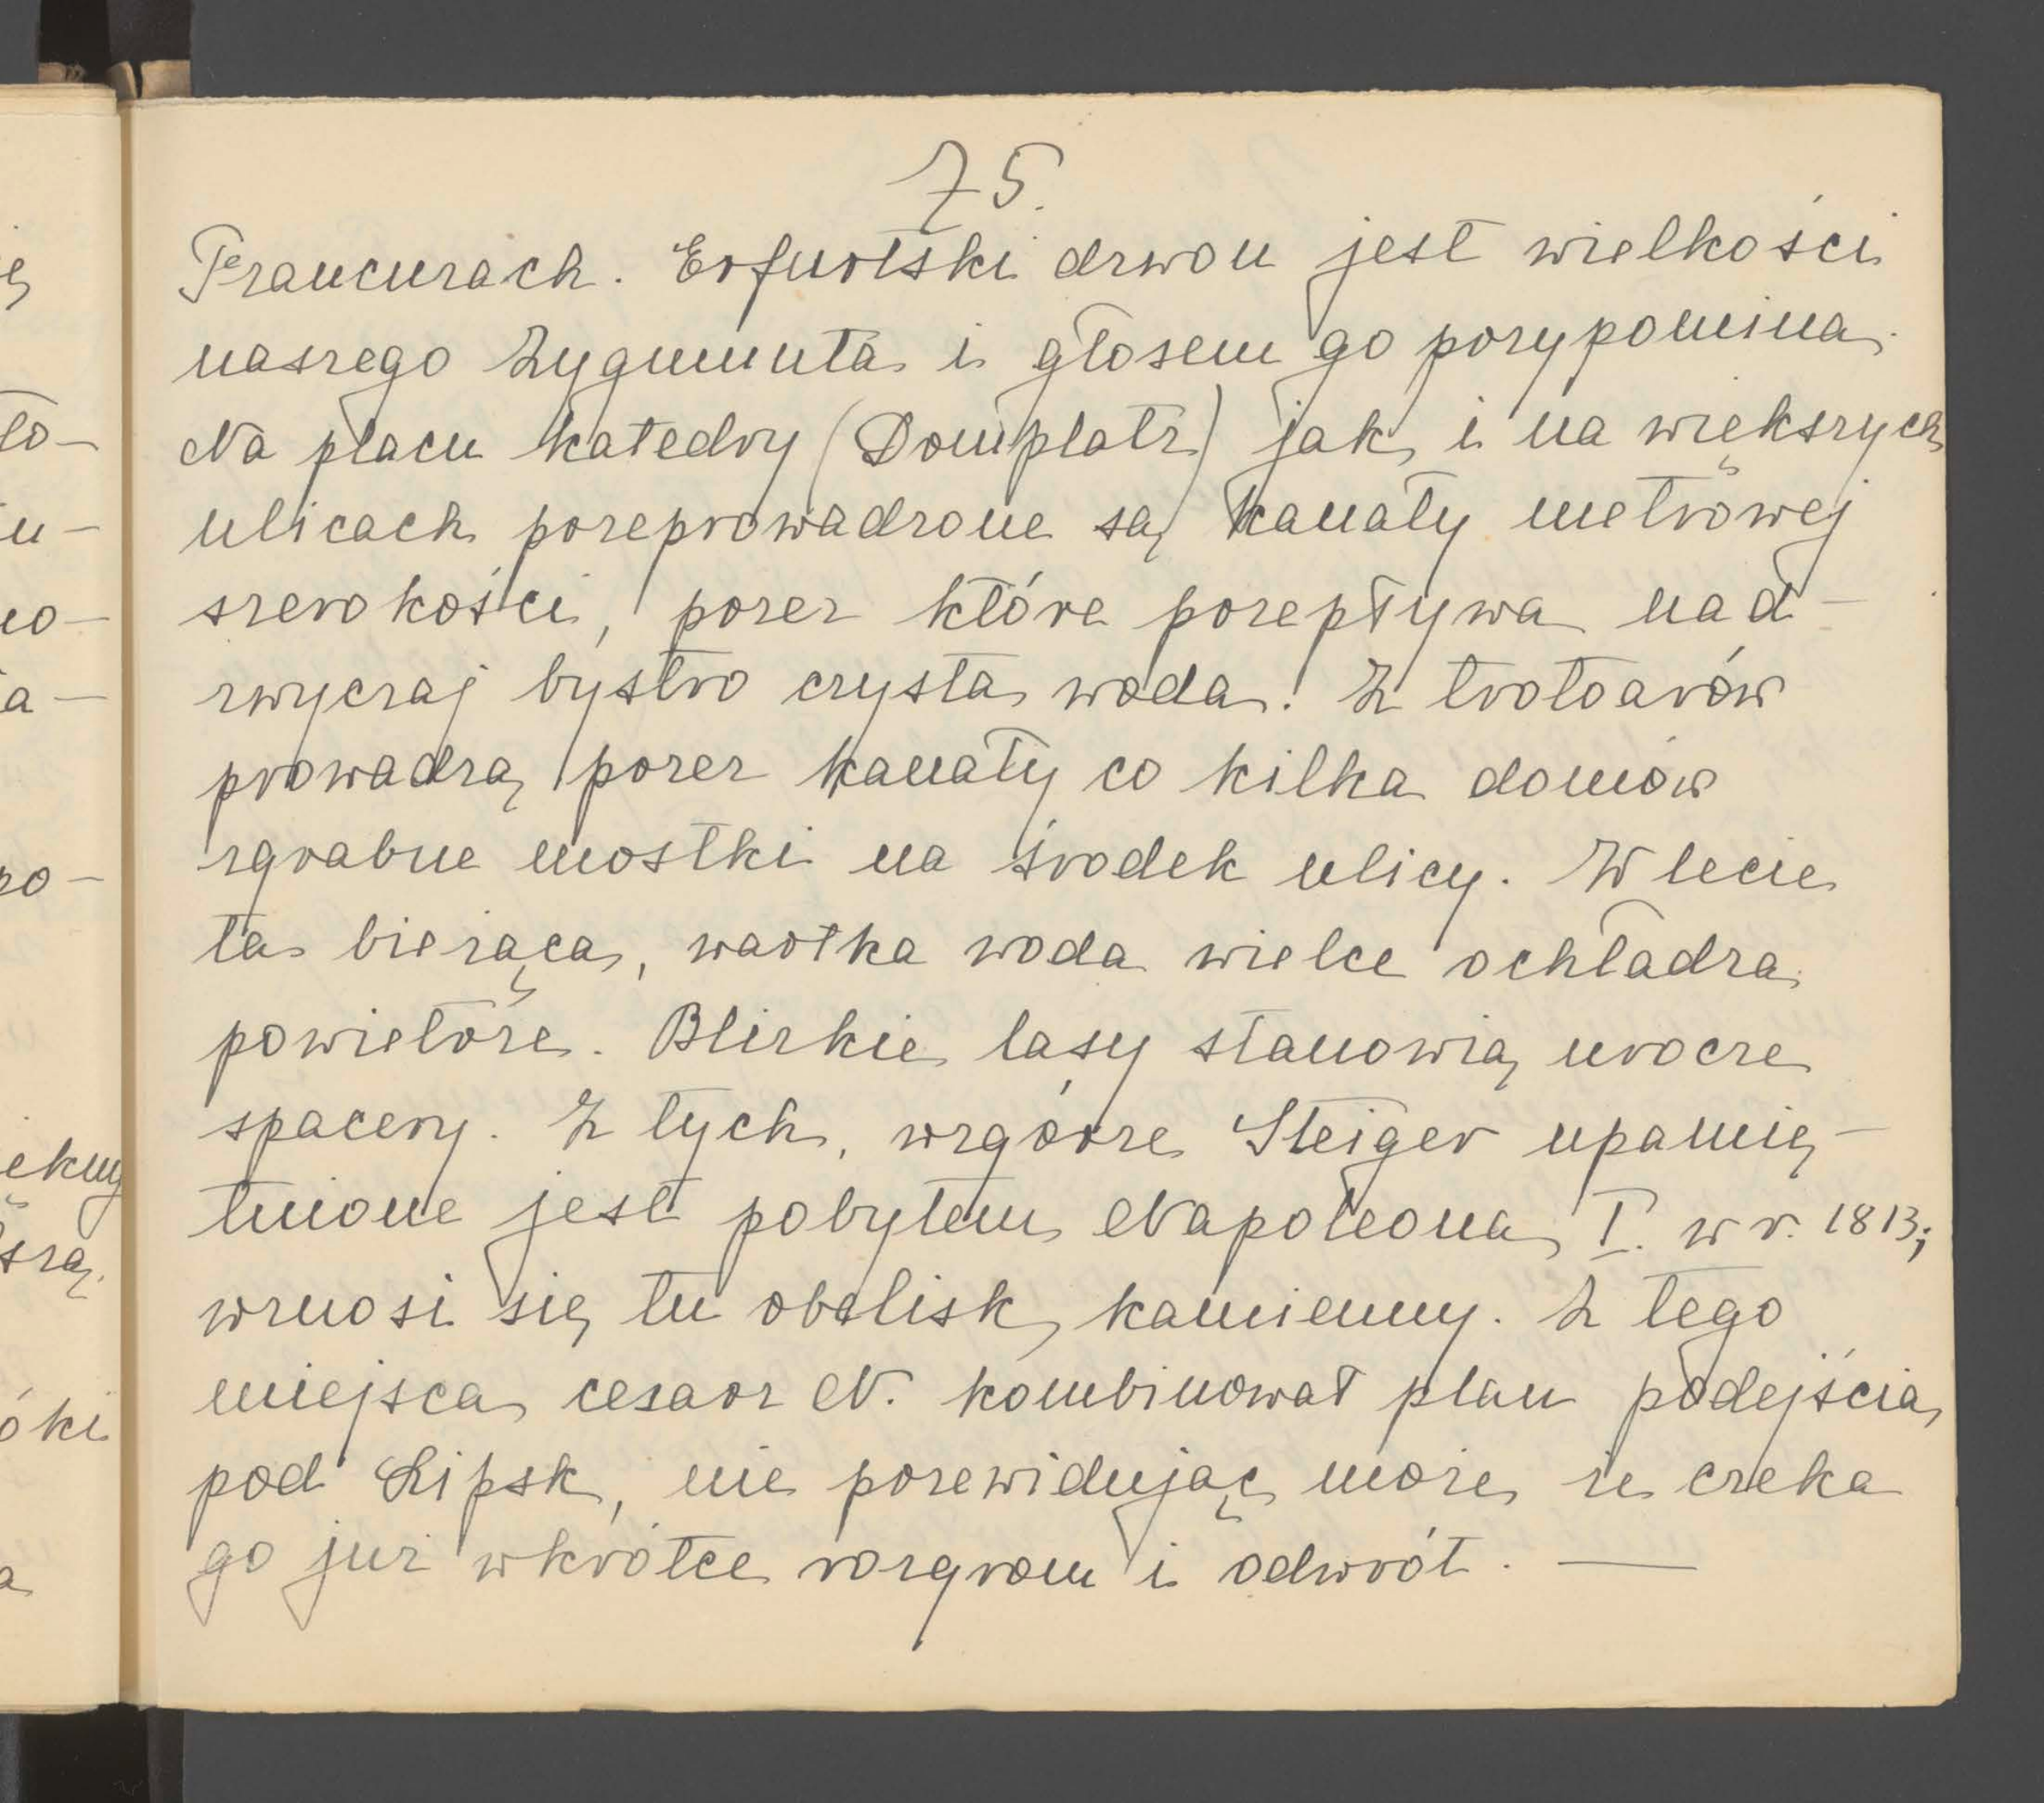 75.
Francuzach. Erfurtski dzwon jest wielkości
naszego Zygmunta i głosem go przypomina.
Na placu katedry (Domplatz) jak i na większych
ulicach przeprowadzone są kanały metrowej
szerokości, przez które przepływa nad-
zwyczaj bystro czysta woda. Z trotoarów
prowadzą przez kanały co kilka domów
zgrabne mostki na środek ulicy. W lecie
ta bieżąca, wartka woda wielce ochładza
powietrze. Blizkie lasy stanowią urocze
spacery. Z tych, wzgórze Steiger upamię-
tnione jest pobytem Napoleona I. w r. 1813;
wznosi się tu obelisk kamienny. Z tego
miejsca cesarz N. kombinował plan podejścia
pod Lipsk, nie przewidując może, że czeka
go już wkrótce rozgrom i odwrót. —
ę
ło-
u-
no-
a-
zo-
ękny
szą.
óki
a